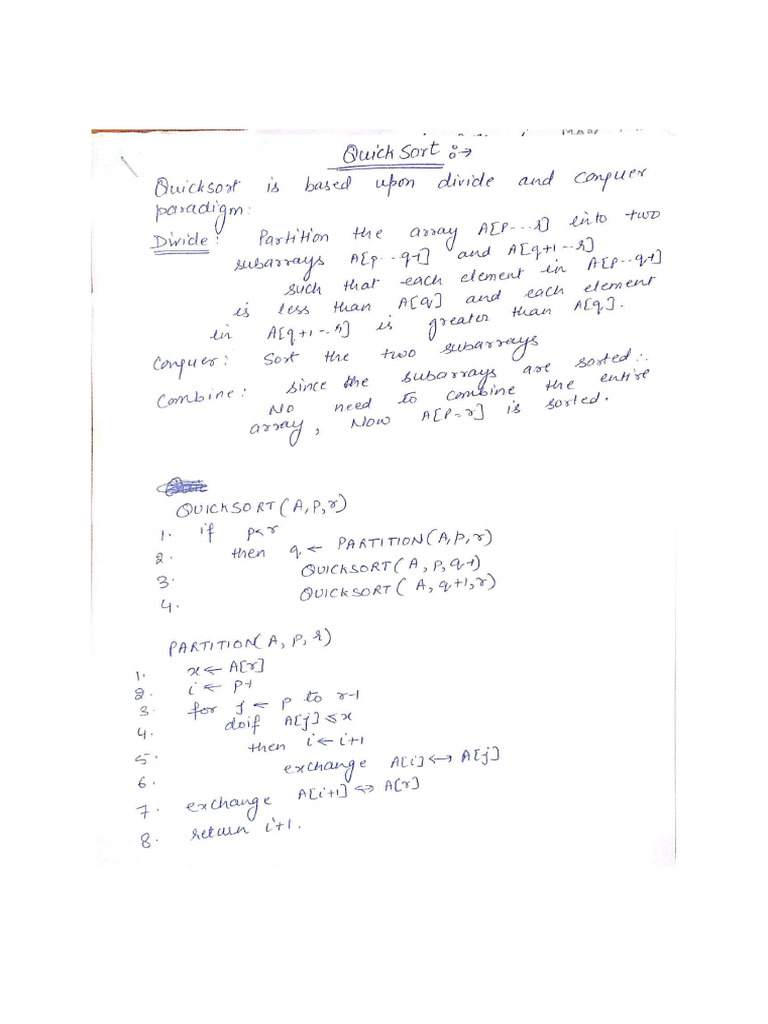 QuickSort :→
Quicksort is based upon divide and conquer
paradigm:
Divide: Partition the array A[P---r] into two
subarrays A[p--q-1] and A[q+1--r]
such that each element in A[P--q-1]
is less than A[q] and each element
in A[q+1--r] is greater than A[q].
Conquer: Sort the two subarrays
Combine: Since the subarrays are sorted ∴
No need to combine the entire
array, Now A[P--r] is sorted.
QUICKSORT(A,P,r)
1. if p<r
2. then q ← PARTITION(A,p,r)
3. QUICKSORT(A, P, q-1)
4. QUICKSORT(A, q+1,r)
PARTITION(A, P, r)
1. x ← A[r]
2. i ← P-1
3. for j ← p to r-1
4. do if A[j] ≤ x
5. then i ← i+1
6. exchange A[i] ↔ A[j]
7. exchange A[i+1] ↔ A[r]
8. return i+1.